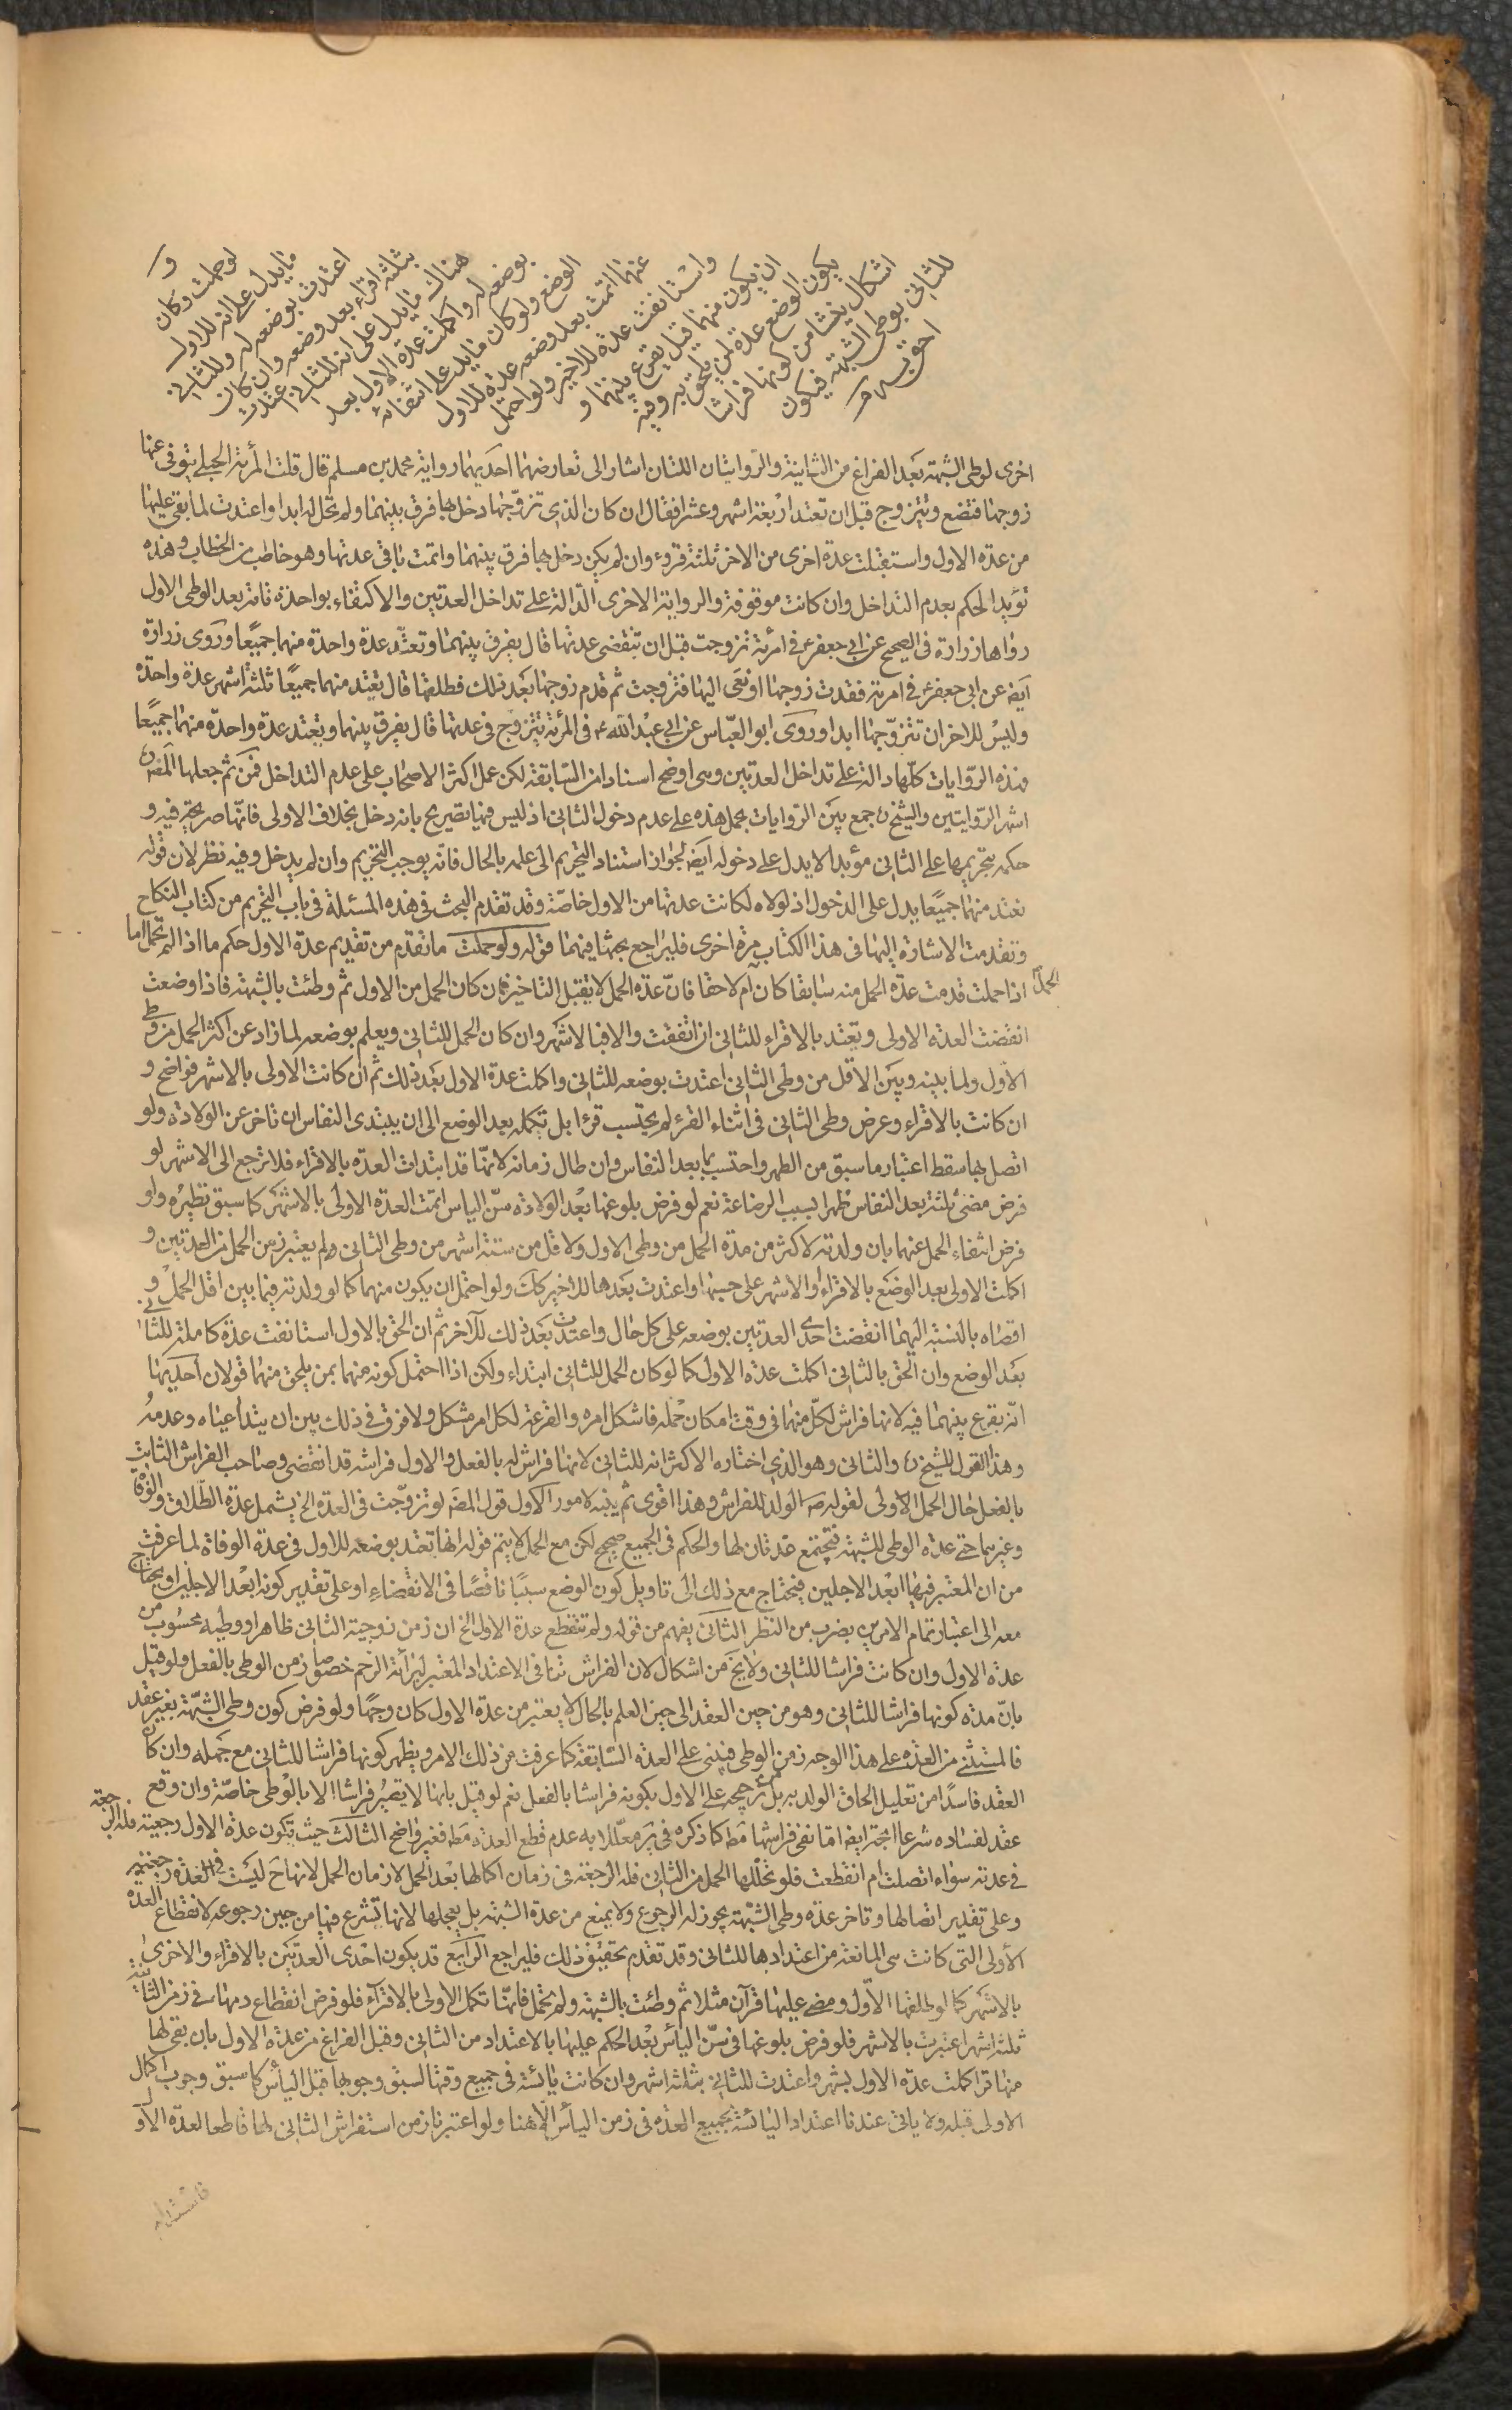 و
لو حملت وكان
ما يدل على انه للاول
اعتدت بوضعه له وللثاني
بثلثة اقراء بعد وضعه وان كان
هناك ما يدل على انه للثاني اعتدت
بوضعه له واكملت عدة الاول بعد
الوضع ولو كان ما يدل على انتفائه
عنهما اتمت بعد وضعه عدة للاول
واستانفت عدة للاخير ولو احتمل
ان يكون منهما قيل يقرع بينهما و
يكون الوضع عدة لمن يلحق به وفيه
اشكال ينشا من كونها فراشا
للثاني بوطي الشبهة فيكون
احق به
اخرى لوطى الشبهة بعد الفراغ من الثانية والروايتان اللتان اشار الى تعارضهما احديهما رواية محمد بن مسلم قال قلت المرئة الحبلى يتوفى عنها
زوجها فتضع وتتزوج قبل ان تعتد اربعة اشهر وعشرا فقال ان كان الذى تزوجها دخل بها فرق بينهما ولم تحل له ابدا واعتدت لما بقى عليها
من عدة الاول واستقبلت عدة اخرى من الاخر ثلثة قروء وان لم يكن دخل بها فرق بينهما واتمت باقى عدتها وهو خاطب من الخطاب وهذه
تؤيد الحكم بعدم التداخل وان كانت موقوفة والرواية الاخرى الدالة على تداخل العدتين والاكتفاء بواحدة تامة بعد الوطى الاول
رواها زرارة فى الصحيح عن ابى جعفر ع فى امرئة تزوجت قبل ان تنقضى عدتها قال يفرق بينهما وتعتد عدة واحدة منهما جميعا وروى زرارة
ايضه عن ابى جعفر ع فى امرئة فقدت زوجها او نعى اليها فتزوجت ثم قدم زوجها بعد ذلك فطلقها قال تعتد منهما جميعا ثلثة اشهر عدة واحدة
وليس للاخر ان تتزوجها ابدا وروى ابو العباس عن ابى عبد الله ع فى المرئة تتزوج فى عدتها قال يفرق بينهما وتعتد عدة واحدة منهما جميعا
وهذه الروايات كلها دالة على تداخل العدتين وهى اوضح اسنادا من السابقة لكن عمل اكثر الاصحاب على عدم التداخل فمن ثم جعلها المصه
اشهر الروايتين والشيخ جمع بين الروايات بحمل هذه على عدم دخول الثانى اذ ليس فيها تصريح بانه دخل بخلاف الاولى فانها صريحة فيه و
حكمه بتحريمها على الثانى مؤبدا لا يدل على دخوله ايضه لجواز استناد التحريم الى علمه بالحال فانه يوجب التحريم وان لم يدخل وفيه نظر لان قوله
تعتد منهما جميعا يدل على الدخول اذ لولاه لكانت عدتها من الاول خاصة وقد تقدم البحث فى هذه المسئلة فى باب التحريم من كتاب النكاح
وتقدمت الاشارة اليها فى هذا الكتاب مرة اخرى فليراجع بحثها فيهما قوله ولو حملت ما تقدم من تقديم عدة الاول حكم ما اذا لم تحمل اما
اذا حملت قدمت عدة الحمل منه سابقا كان ام لاحقا فان عدة الحمل لا تقبل التاخير فان كان الحمل من الاول ثم وطئت بالشبهة فاذا وضعت
الحمل
انقضت العدة الاولى وتعتد بالاقراء للثانى ان اتفقت والا فبالاشهر وان كان الحمل للثانى ويعلم بوضعه لما زاد عن اكثر الحمل من وطى
الاول ولما بينه وبين الاقل من وطى الثانى اعتدت بوضعه للثانى واكملت عدة الاول بعد ذلك ثم ان كانت الاولى بالاشهر فواضح و
ان كانت بالاقراء وعرض وطى الثانى فى اثناء القرء لم يحتسب قرءا بل تكمله بعد الوضع الى ان يبتدى النفاس ان تاخر عن الولادة ولو
اتصل بها سقط اعتبار ما سبق من الطهر واحتسب بما بعد النفاس وان طال زمانه لانها قد ابتدات العدة بالاقراء فلا ترجع الى الاشهر لو
فرض مضى ثلثة بعد النفاس طهرا بسبب الرضاعة نعم لو فرض بلوغها بعد الولادة سن الياس اتمت العدة الاولى بالاشهر كما سبق نظيره ولو
فرض انتفاء الحمل عنهما بان ولدته لاكثر من مدة الحمل من وطى الاول ولاقل من ستة اشهر من وطى الثانى ولم يعتبر زمن الحمل من العدتين و
اكملت الاولى بعد الوضع بالاقراء او الاشهر على حسبها واعتدت بعدها للاخير كك ولو احتمل ان يكون منهما كما لو ولدته فيما بين اقل الحمل و
اقصاه بالنسبة اليهما انقضت احدى العدتين بوضعه على كل حال واعتدت بعد ذلك للآخر ثم ان الحق بالاول استانفت عدة كاملة للثانى
بعد الوضع وان الحق بالثانى اكملت عدة الاول كما لو كان الحمل للثانى ابتداء ولكن اذا احتمل كونه منهما بمن يلحق منهما قولان احديهما
انه يقرع بينهما فيه لانها فراش لكل منهما فى وقت امكان حمله فاشكل امره والقرعة لكل امر مشكل ولا فرق فى ذلك بين ان يتداعياه وعدمه
وهذا القول للشيخ والثانى وهو الذى اختاره الاكثر انه للثانى لانها فراش له بالفعل والاول فراشه قد انقضى وصاحب الفراش الثابت
بالفعل حال الحمل الاولى لقوله صه الولد للفراش وهذا اقوى ثم ينبه لامور الاول قول المصه لو تزوجت فى العدة الخ يشمل عدة الطلاق والوفاة
وغيرهما حتى عدة الوطى للشبهة فتجتمع عدتان لها والحكم فى الجميع صحيح لكن مع الحمل لا يتم قوله انها تعتد بوضعه للاول فى عدة الوفاة لما عرفت
من ان المعتبر فيها ابعد الاجلين فيحتاج مع ذلك الى تاويل كون الوضع سببا ناقصا فى الانقضاء او على تقدير كونه ابعد الاجلين او يحتاج
معه الى اعتبار تمام الامرين بضرب من النظر الثانى يفهم من قوله ولم تنقطع عدة الاول الخ ان زمن زوجية الثانى ظاهرا ووطيه محسوب من
عدة الاول وان كانت فراشا للثانى ولا يخ من اشكال لان الفراش تنافى الاعتداد المعتبر لبرائة الرحم خصوصا زمن الوطى بالفعل ولو قيل
بان مدة كونها فراشا للثانى وهو من حين العقد الى حين العلم بالحال لا يعتبر من عدة الاول كان وجها ولو فرض كون وطى الشبهة بغير عقد
فالمستثنى من العدة على هذا الوجه زمن الوطى فيبنى على العدة السابقة كما عرفت من ذلك الامر ويظهر كونها فراشا للثانى مع جهله وان كان
العقد فاسدا من تعليل الحاق الولد به بل ترجيحه على الاول بكونه فراشا بالفعل نعم لو قيل بانها لا تصير فراشا الا بالوطى خاصة وان وقع
عقد لفساده شرعا اتجه ايضه اما نفى فراشها مطه كما ذكره فى ير معللا به عدم قطع العدة مطه فغير واضح الثالث حيث تكون عدة الاول رجعية فله الرجعة
فى عدته سواء اتصلت ام انقطعت فلو تخللها الحمل من الثانى فله الرجعة فى زمان اكمالها بعد الحمل لا زمان الحمل لانها ح ليست فى العدة رجعية
وعلى تقدير اتصالها وتاخر عدة وطى الشبهة يجوز له الرجوع ولا يمنع من عدة الشبهة بل يعجلها لانها تشرع فيها من حين رجوعه لانقطاع العدة
الاولى التى كانت هى المانعة من اعتدادها للثانى وقد تقدم تحقيق ذلك فليراجع الرابع قد يكون احدى العدتين بالاقراء والاخرى
بالاشهر كما لو طلقها الاول ومضى عليها قرآن مثلا ثم وطئت بالشبهة ولم تحمل فانها تكمل الاولى بالاقراء فلو فرض انقطاع دمها فى زمن الثانية
ثلثة اشهر اعتبرت بالاشهر فلو فرض بلوغها فى سن اليأس بعد الحكم عليها بالاعتداد من الثانى وقبل الفراغ من عدة الاول بان بقى لها
منها قرء اكملت عدة الاول بشهر واعتدت للثانى بثلثة اشهر وان كانت يائسة فى جميع وقتها لسبق وجوبها قبل اليأس كما سبق وجوب اكمال
الاولى قبله ولا ياتى عندنا اعتداد اليائسة بجميع العدة فى زمن اليأس الا هنا ولو اعتبرنا زمن استفراش الثانى لها قاطعا لعدة الاول